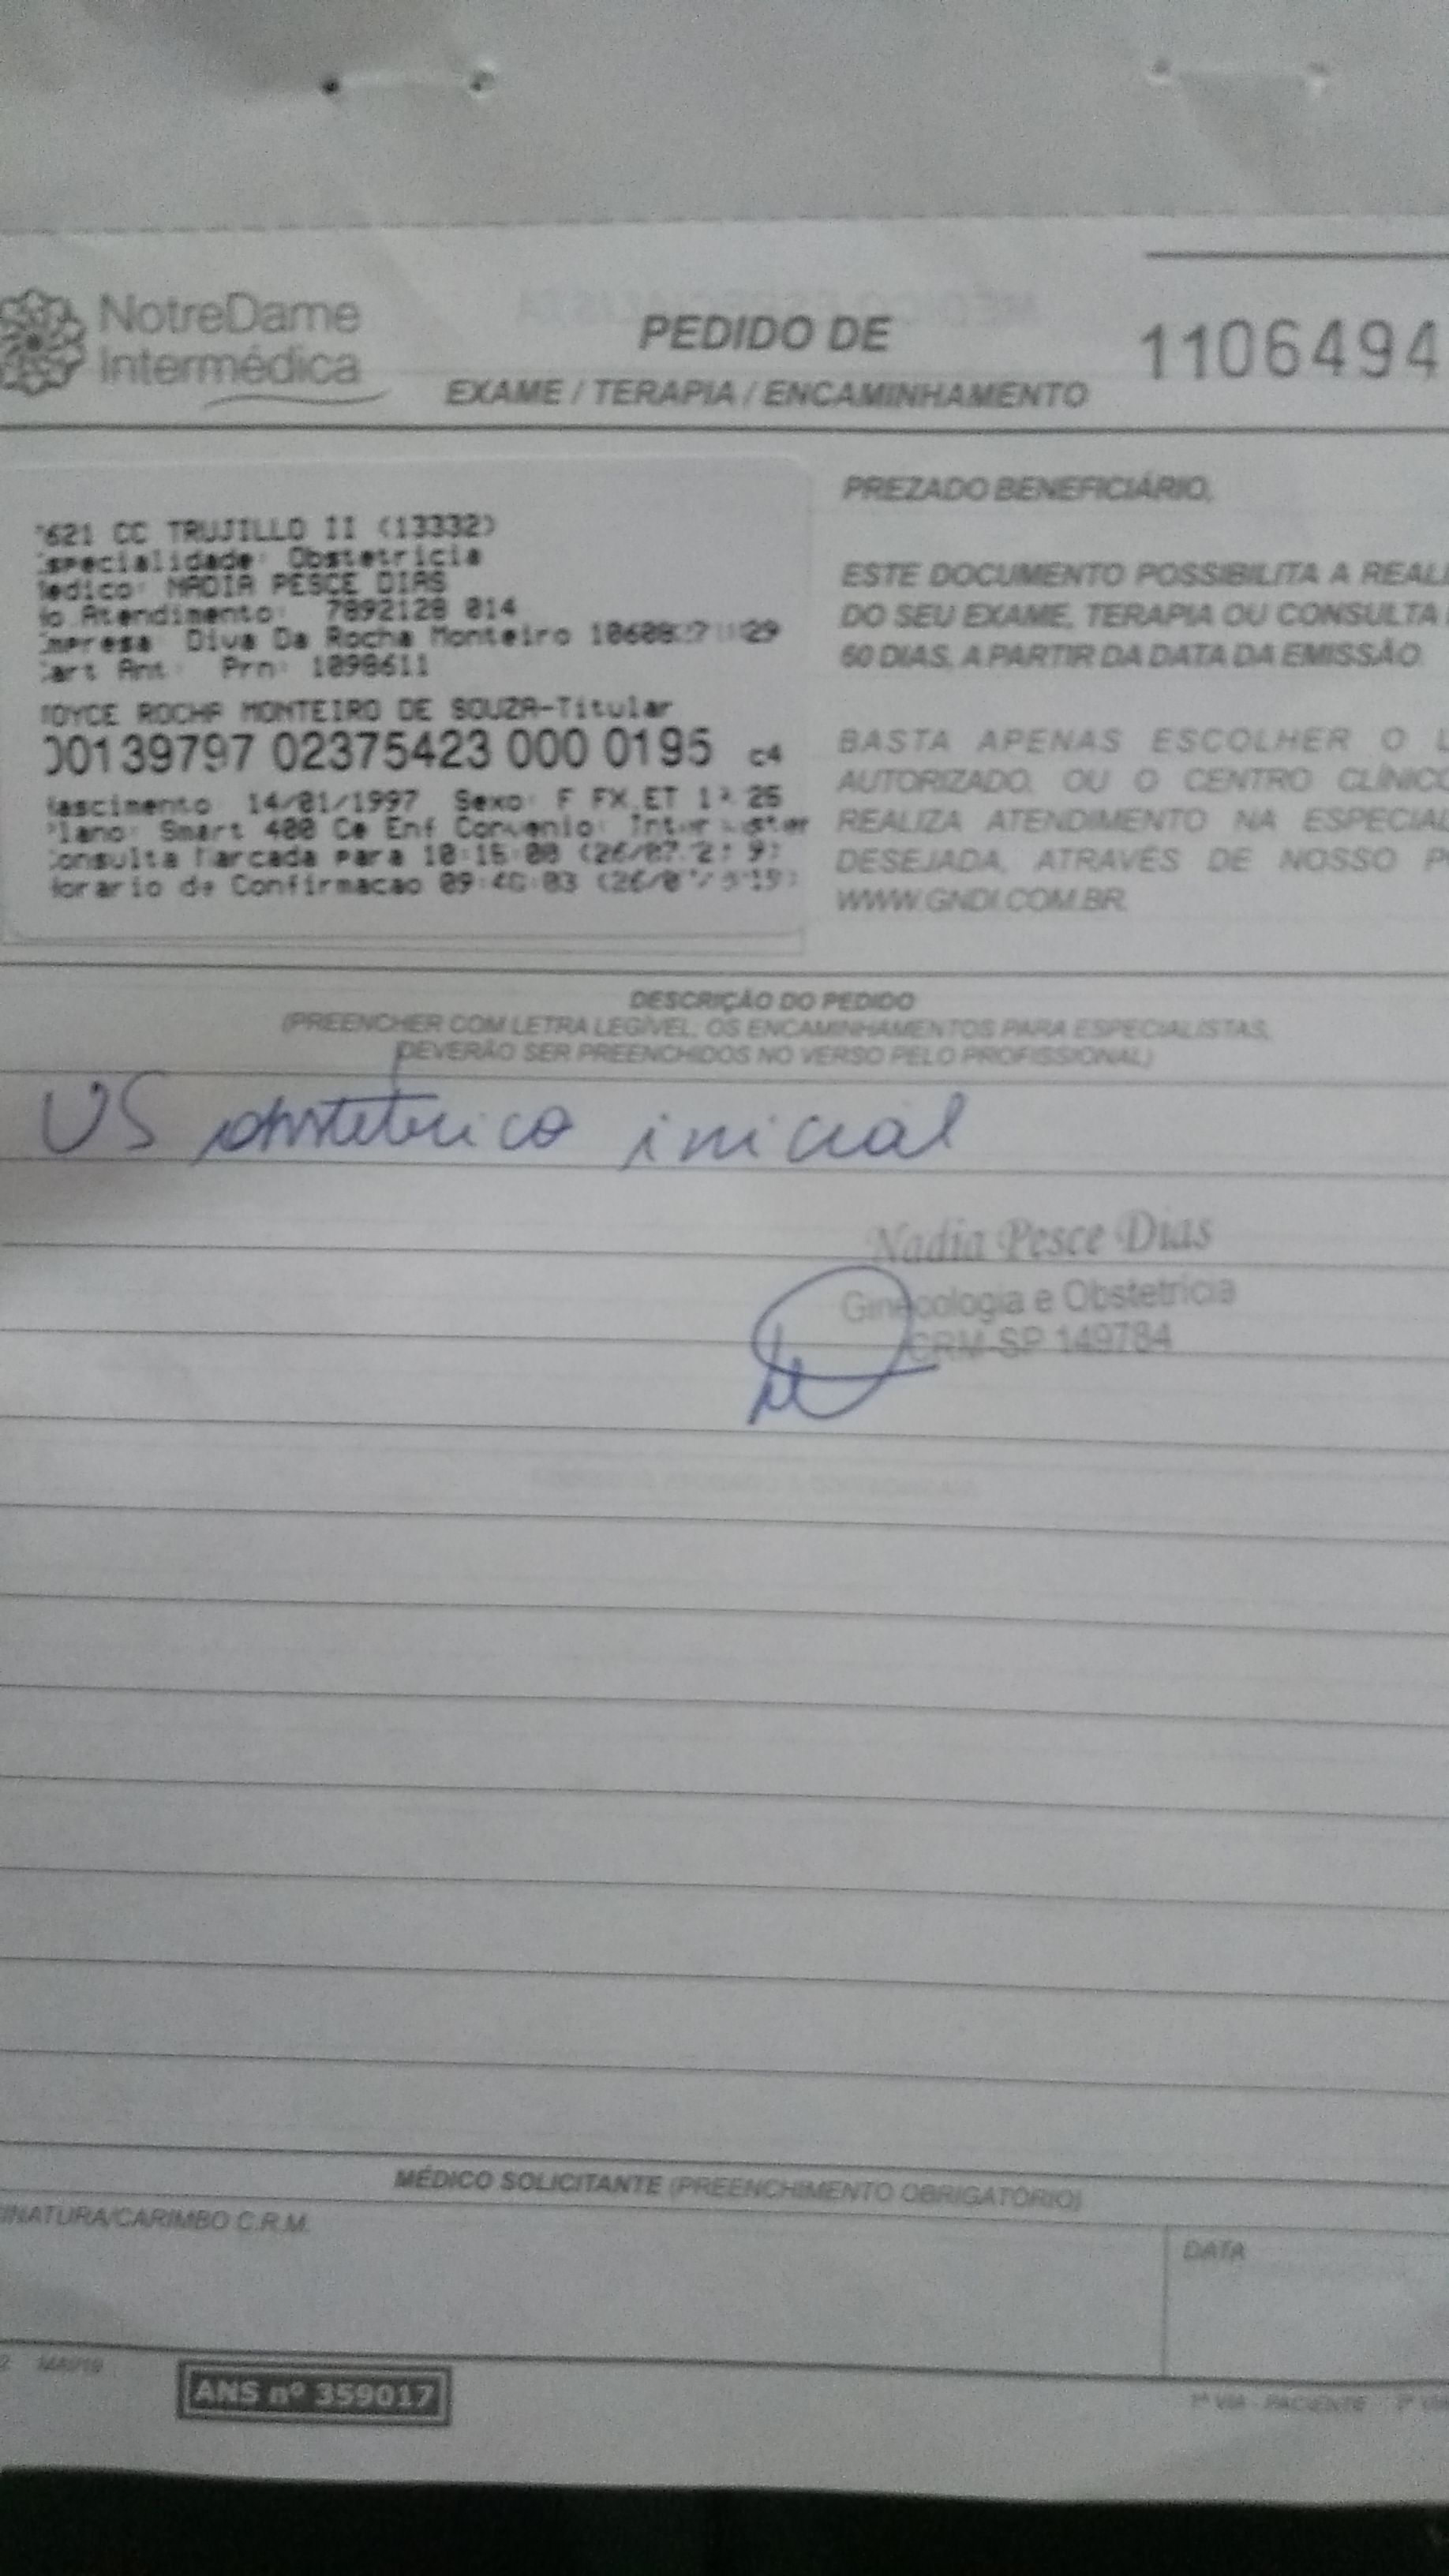 NotreDame
Intermédica
PEDIDO DE
EXAME / TERAPIA / ENCAMINHAMENTO
1106494
621 CC TRUJILLO II (13332)
specialidade: Obstetricia
edico: NADIA PESCE DIAS
o Atendimento: 7892128 014
mpresa: Diva Da Rocha Monteiro
art Ant: Prn: 1098611
OYCE ROCHA MONTEIRO DE SOUZA-Titular
00139797 02375423 000 0195 c4
ascimento 14/01/1997 Sexo: F FX.ET 25
lano: Smart 400 Ce Enf Convenio:
onsulta Marcada para 10:15:00
orario de Confirmacao
PREZADO BENEFICIÁRIO,
ESTE DOCUMENTO POSSIBILITA A REALI
DO SEU EXAME, TERAPIA OU CONSULTA
60 DIAS, A PARTIR DA DATA DA EMISSÃO.
BASTA APENAS ESCOLHER O L
AUTORIZADO, OU O CENTRO CLÍNICO
REALIZA ATENDIMENTO NA ESPECIAL
DESEJADA, ATRAVÉS DE NOSSO P
WWW.GNDI.COM.BR.
DESCRIÇÃO DO PEDIDO
(PREENCHER COM LETRA LEGÍVEL, OS ENCAMINHAMENTOS PARA ESPECIALISTAS,
DEVERÃO SER PREENCHIDOS NO VERSO PELO PROFISSIONAL)
US obstetrico inicial
Nadia Pesce Dias
Ginecologia e Obstetrícia
CRM-SP 149784
MÉDICO SOLICITANTE (PREENCHIMENTO OBRIGATÓRIO)
INATURA/CARIMBO C.R.M.
DATA
MAI/19
ANS nº 359017
1ª VIA - PACIENTE